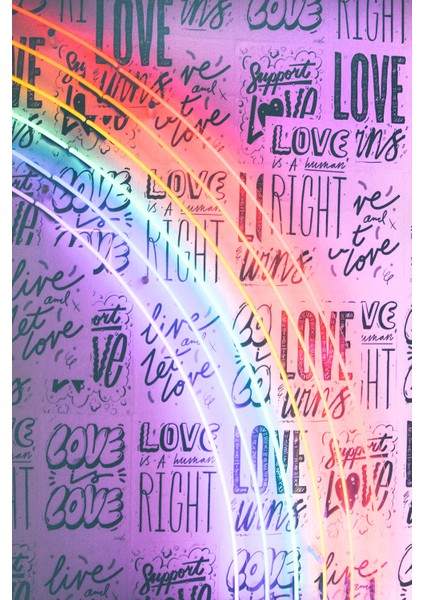 LOVE
wins
RIGHT
Support
LOVE
wins
live
and
let
love
Support
LOVE
wins
LOVE
IS A human
RIGHT
LOVE
is
LOVE
LOVE
IS A human
RIGHT
wins
ve
and
t
love
live
and
let
love
ort
ve
live
and
let
love
LOVE
wins
VE
uman
HT
LOVE
is
LOVE
LOVE
IS A human
RIGHT
LOVE
wins
Support
Love
live
and
Support
LOVE
wins
live